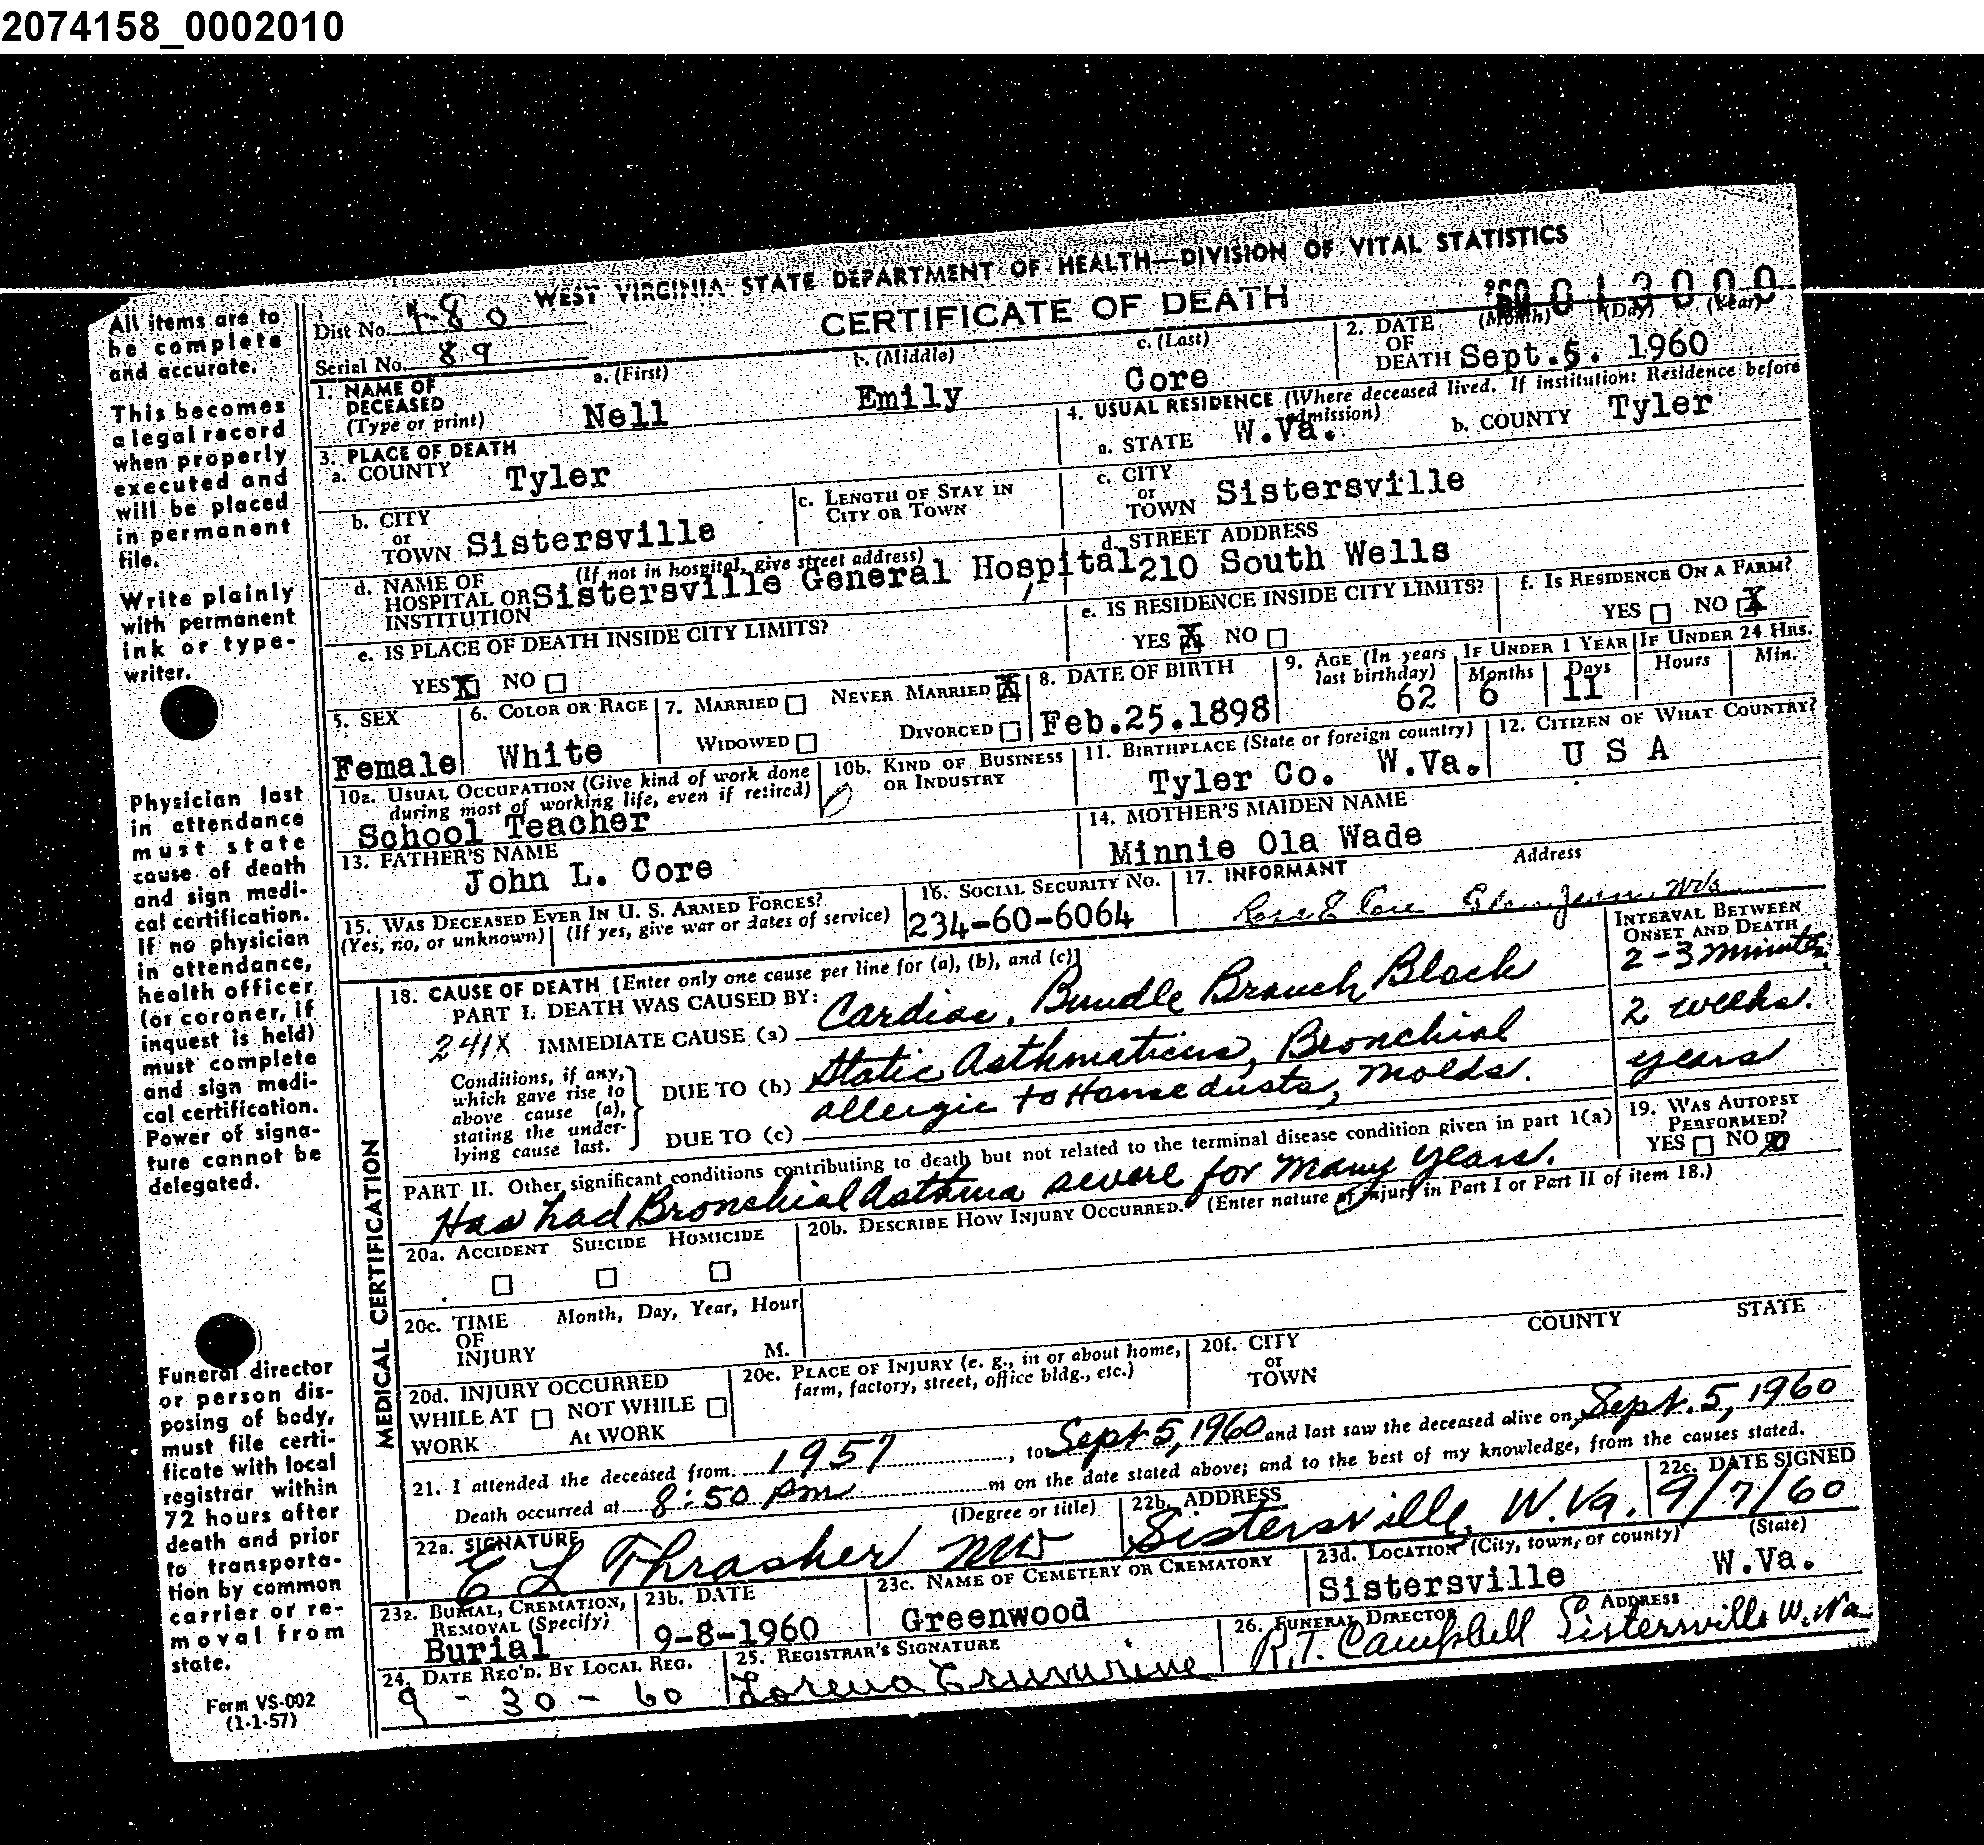 2074158_0002010
WEST VIRGINIA STATE DEPARTMENT OF HEALTH—DIVISION OF VITAL STATISTICS
CERTIFICATE OF DEATH
013000
Dist No. 480
Serial No. 89
All items are to
be complete
and accurate.
This becomes
a legal record
when properly
executed and
will be placed
in permanent
file.
Write plainly
with permanent
ink or type-
writer.
Physician last
in attendance
must state
cause of death
and sign medi-
cal certification.
If no physician
in attendance,
health officer
(or coroner, if
inquest is held)
must complete
and sign medi-
cal certification.
Power of signa-
ture cannot be
delegated.
Funeral director
or person dis-
posing of body,
must file certi-
ficate with local
registrar within
72 hours after
death and prior
to transporta-
tion by common
carrier or re-
moval from
state.
Form VS-002
(1-1-57)
1. NAME OF DECEASED (Type or print) a. (First) Nell b. (Middle) Emily c. (Last) Core
2. DATE OF DEATH (Month) (Day) (Year) Sept.5. 1960
3. PLACE OF DEATH
a. COUNTY Tyler
b. CITY or TOWN Sistersville
c. LENGTH OF STAY IN CITY OR TOWN
d. NAME OF HOSPITAL OR INSTITUTION (If not in hospital, give street address) Sistersville General Hospital
e. IS PLACE OF DEATH INSIDE CITY LIMITS?
YES X NO
4. USUAL RESIDENCE (Where deceased lived. If institution: Residence before admission)
a. STATE W.Va. b. COUNTY Tyler
c. CITY or TOWN Sistersville
d. STREET ADDRESS 210 South Wells
e. IS RESIDENCE INSIDE CITY LIMITS? YES X NO
f. IS RESIDENCE ON A FARM? YES NO X
5. SEX Female
6. COLOR OR RACE White
7. MARRIED NEVER MARRIED X
WIDOWED DIVORCED
8. DATE OF BIRTH Feb.25.1898
9. AGE (In years last birthday) 62
IF UNDER 1 YEAR Months 6 Days 11
IF UNDER 24 HRS. Hours Min.
10a. USUAL OCCUPATION (Give kind of work done during most of working life, even if retired) School Teacher
10b. KIND OF BUSINESS OR INDUSTRY
11. BIRTHPLACE (State or foreign country) Tyler Co. W.Va.
12. CITIZEN OF WHAT COUNTRY? U S A
13. FATHER'S NAME John L. Core
14. MOTHER'S MAIDEN NAME Minnie Ola Wade
15. WAS DECEASED EVER IN U. S. ARMED FORCES?
(Yes, no, or unknown) (If yes, give war or dates of service)
16. SOCIAL SECURITY NO. 234-60-6064
17. INFORMANT Address
Rose E Core
MEDICAL CERTIFICATION
18. CAUSE OF DEATH (Enter only one cause per line for (a), (b), and (c))
INTERVAL BETWEEN ONSET AND DEATH
PART I. DEATH WAS CAUSED BY:
241X IMMEDIATE CAUSE (a) Cardiac, Bundle Branch Block 2-3 minutes
Conditions, if any, which gave rise to above cause (a), stating the underlying cause last.
DUE TO (b) Static Asthmaticus, Bronchial 2 weeks.
allergic to House dusts, molds. years
DUE TO (c)
PART II. Other significant conditions contributing to death but not related to the terminal disease condition given in part 1(a)
Has had Bronchial Asthma severe for many years.
19. WAS AUTOPSY PERFORMED?
YES NO X
20a. ACCIDENT SUICIDE HOMICIDE
20b. DESCRIBE HOW INJURY OCCURRED. (Enter nature of injury in Part I or Part II of item 18.)
20c. TIME OF INJURY Month, Day, Year, Hour M.
20d. INJURY OCCURRED
WHILE AT WORK NOT WHILE At WORK
20e. PLACE OF INJURY (e. g., in or about home, farm, factory, street, office bldg., etc.)
20f. CITY or TOWN COUNTY STATE
21. I attended the deceased from 1957, to Sept 5, 1960 and last saw the deceased alive on Sept. 5, 1960
Death occurred at 8:50 Pm m on the date stated above; and to the best of my knowledge, from the causes stated.
22a. SIGNATURE (Degree or title) E L Thrasher MD
22b. ADDRESS Sistersville, W.Va.
22c. DATE SIGNED 9/7/60
23a. BURIAL, CREMATION, REMOVAL (Specify) Burial
23b. DATE 9-8-1960
23c. NAME OF CEMETERY OR CREMATORY Greenwood
23d. LOCATION (City, town, or county) (State) Sistersville W.Va.
24. DATE REC'D. BY LOCAL REG. 9-30-60
25. REGISTRAR'S SIGNATURE Lorena Crumrine
26. FUNERAL DIRECTOR ADDRESS R.T. Campbell Sistersville W.Va.